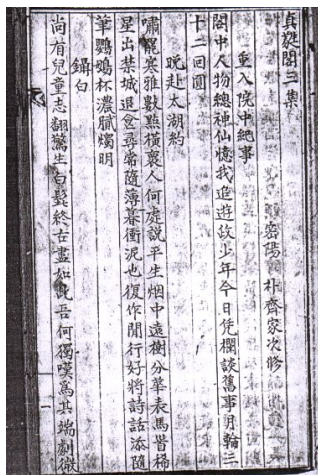 貞蕤閣三集
密陽 朴齊家次修
重入院中紀事
閣中人物總神仙憶我追遊故少年今日凭欄談舊事月輪三
十二回圓
晚赴太湖約
嘯罷寒雅數點橫裹人何處說平生烟中遠樹分華表馬首稀
星出禁城退食尋常隨薄暮衝泥也復作閒行好將詩話添隨
筆鸚鵡杯濃膩燭明
鑷白
尚有兒童志翻驚生白髮終古盡如此吾何獨嘆爲其端劇微